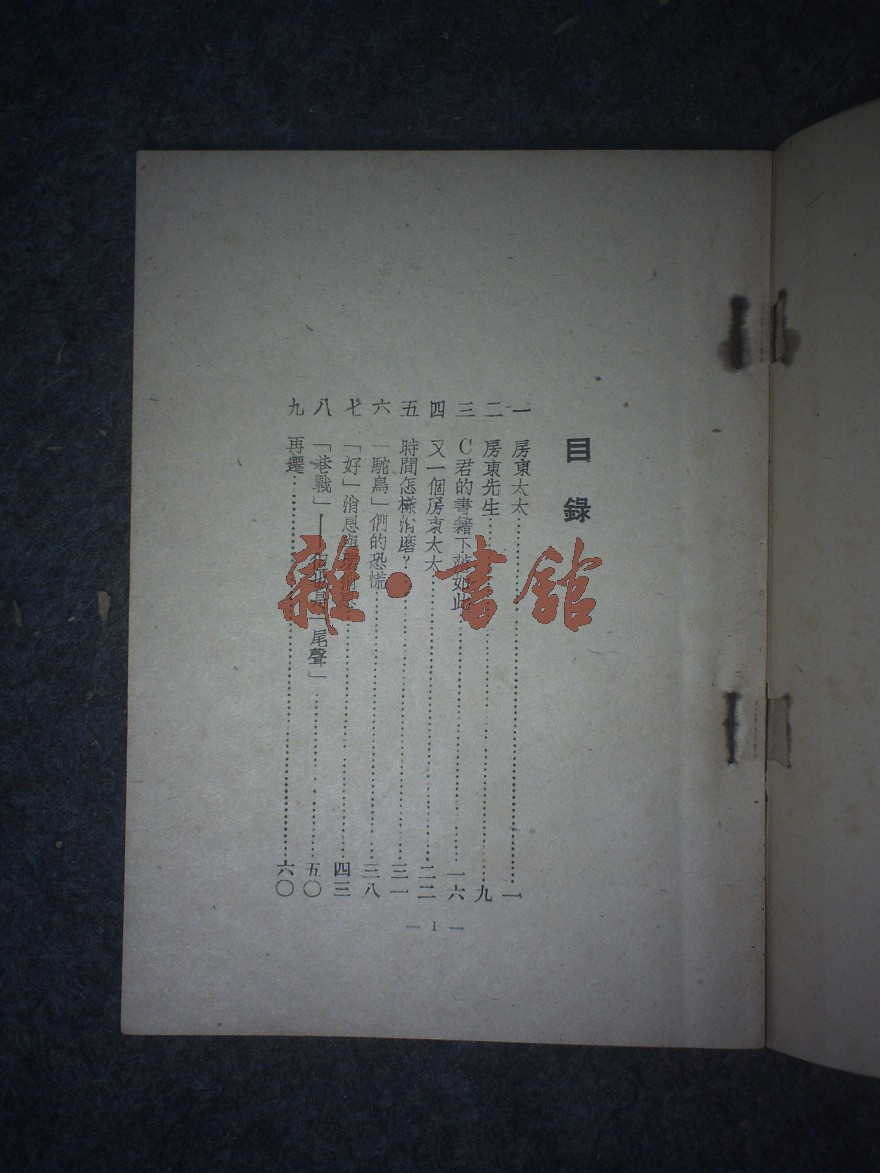 目錄
一 房東太太 一
二 房東先生 九
三 C君的書籍下落如此 一六
四 又一個房東太太 二二
五 時間怎樣消磨？ 三一
六 「駝鳥」們的恐慌 三八
七 「好」消息與壞消息 四三
八 「巷戰」——「尾聲」 五〇
九 再遷 六〇
— 1 —
雜·書館